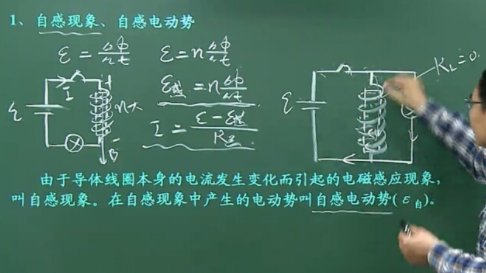 1、自感现象、自感电动势
ε = ΔΦ/Δt
ε = nΔΦ/Δt
ε感 = nΔΦ/Δt
I = (ε − ε感)/R总
ε
I
n大
B
ε
RL=0.
由于导体线圈本身的电流发生变化而引起的电磁感应现象,
叫自感现象。在自感现象中产生的电动势叫自感电动势(ε自)。